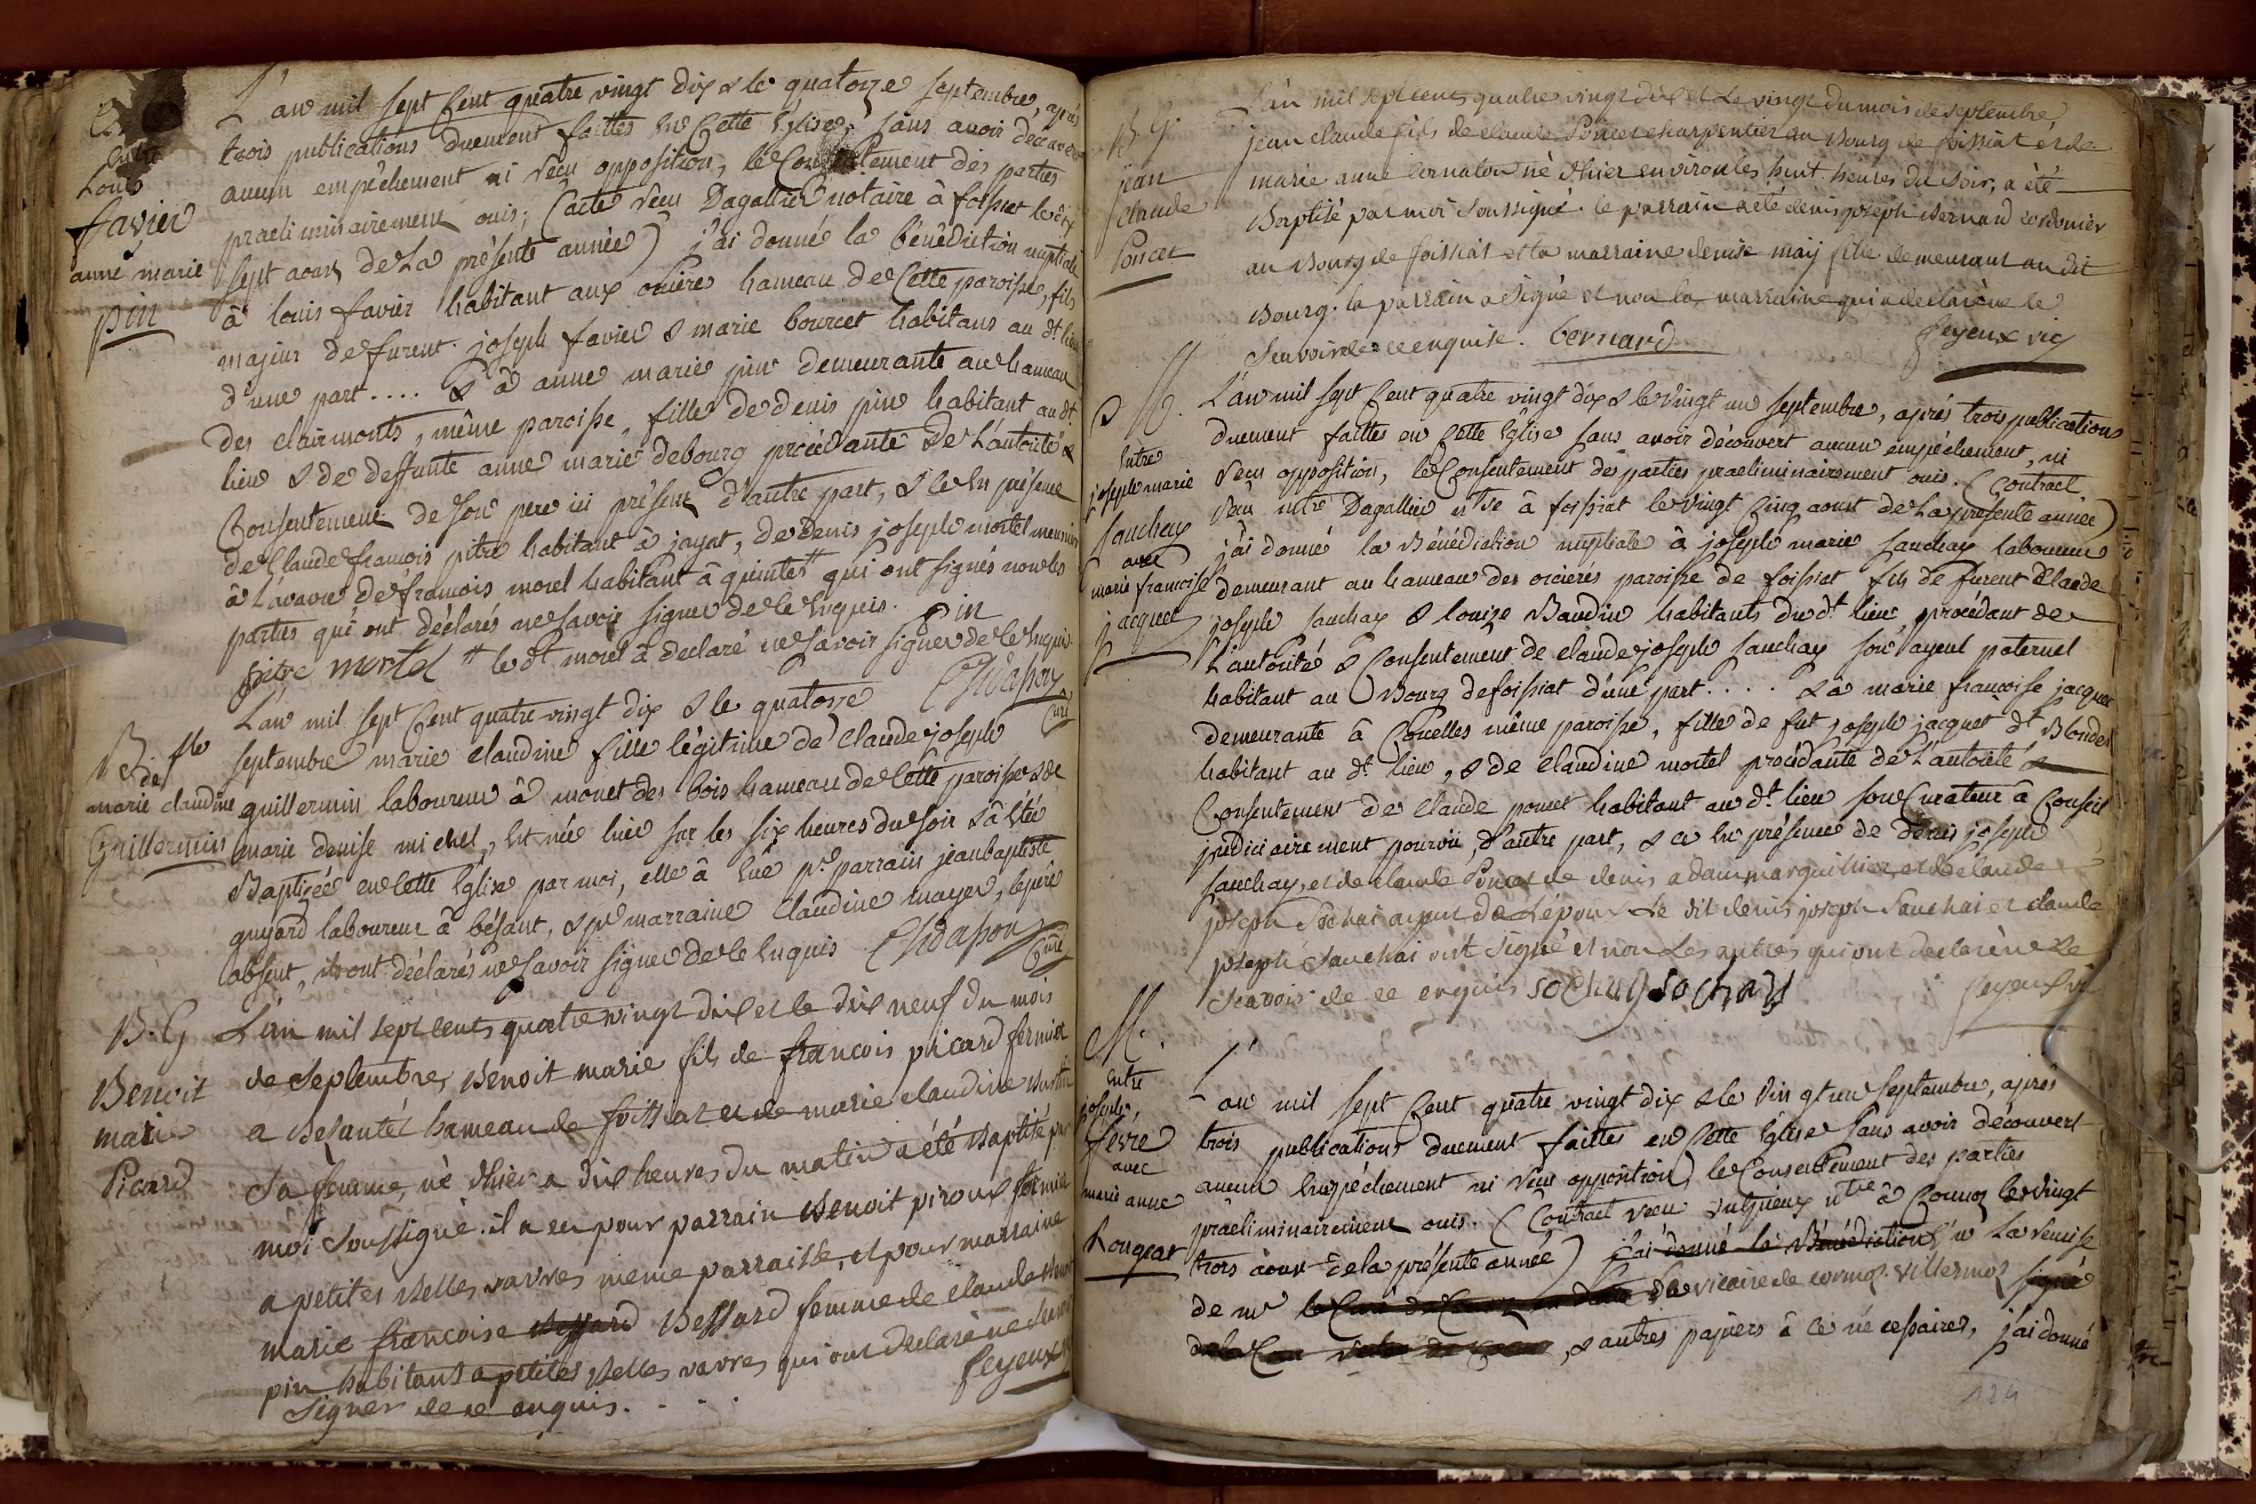 entre
Louis
favier
anne marie
pin
L'an mil sept cent quatre vingt dix & le quatorze septembre, aprés
trois publications duement faittes en Cette Eglise, sans avoir decouvert
aucun empêchement ni reçu opposition, le Consentement des parties
praeliminairement ouis; (acte reçu Dagallier notaire à foissiat le dix
sept aoust de La présente année) j'ai donné la bénédiction nuptiale
à louis favier habitant aux oncière hameau de Cette paroisse, fils
majeur de furent joseph favier & marie bourcet habitans au dt. lieu
d'une part.... & à anne marie pin demeurante au hameau
des clairmonts, même paroisse, fille de denis pin habitant au dt.
lieu & de deffunte anne marie debourg procédante de L'autorité &
Consentement de son pere ici présent d'autre part, & ce en présence
de Claude francois pitre habitant à jayat, de denis joseph mortel meunier
à L'avavre de francois morel habitant à quinte # qui ont signés non les
parties qui ont déclarés ne savoir signer de ce Enquis. pin
pitre mortel # le dt. morel à declaré ne savoir signer de ce Enquis
Chuasson
Curé
B. fle
de
marie claudine
Guillermin
L'an mil sept Cent quatre vingt dix & le quatorze
septembre marie claudine fille légitime de claude joseph
guillermin laboureur à monet des bois hameau de Cette paroisse & de
marie denise michel, Est née hier sur les six heures du soir & à Eté
Baptisée en Cette Eglise par moi, elle à Eüe pr. parrain jean baptiste
guyard laboureur à bésant, & pr marraine Claudine mayer, le pére
absent, ils ont déclarés ne savoir signer de ce Enquis Chuasson
Curé
B. G
Benoit
marie
Picard
L'an mil sept cents quatre vingt dix et le dix neuf du mois
de septembre, Benoit marie fils de francois picard fermier
a Besantet hameau de foissiat et de marie claudine
Sa femme, né d'hier a dix heures du matin a été Baptisé par
moi soussigné. il a eu pour parrain Benoit piroux fermier
a petites Belles vavres même parroisse, et pour marraine
marie francoise Bessard femme de claude
pin habitans a petites Belles vavres qui ont declaré ne
signer de ce enquis. . . .
feyeux
B. G.
jean
claude
Poncet
L'an mil sept cents quatre vingt dix et le vingt du mois de septembre
jean claude fils de claude Poncet charpentier au Bourg de foissiat et de
marie anne Cornaton né d'hier environ les huit heures du soir, a été
Baptisé par moi soussigné. le parrain a été denis joseph Bernard cordonier
au Bourg de foissiat et la marraine denise may fille demeurant au dit
Bourg. le parrain a signé et non la marraine qui a declaré ne le
scavoir de ce enquise. bernard
feyeux vic
M.
Entre
joseph marie
sauchay
avec
marie francoise
jacquet
L'an mil sept Cent quatre vingt dix & le vingt un septembre, aprés trois publications
duement faittes en Cette Eglise sans avoir découvert aucun empéchement, ni
reçu opposition, le Consentement des parties praeliminairement ouis. (Contract
reçu mtre Dagallier ntre à foissiat le vingt Cinq aoust de La présente année)
j'ai donné la Bénédiction nuptiale à joseph marie sauchay laboureur
demeurant au hameau des orcierés paroisse de foissiat fils de furent Claude
joseph sauchay & louize Baudin habitants du dt. lieu, procédant de
L'autorité & Consentement de claude joseph sauchay son ayeul paternel
habitant au Bourg de foissiat d'une part.... & à marie francoise jacquet
demeurante à Couelles même paroisse, fille de fut joseph jacquet dt Blondel
habitant au dt. lieu, & de Claudine mortel procédante de L'autorité &
Consentement de claude poncet habitant au dt. lieu son Curateur à Conseil
judiciairement pourvu, d'autre part, & ce en présence de denis joseph
sauchay, et de claude Poncet de denis adam marguillier, et de claude
joseph Sochai ayeul de L'époux Le dit denis joseph Sauchai et claude
joseph Sauchai ont signé et non Les autres qui ont declaré ne Le
scavoir de ce enquis sochay sochay
feyeux vic
M.
Entre
joseph
fevre
avec
marie anne
Rongeat
L'an mil sept Cent quatre vingt dix & le vingt un septembre, aprés
trois publications duement faittes en Cette Eglise sans avoir découvert
aucun Empéchement ni reçu opposition, le Consentement des parties
praeliminairement ouis. (Contract reçu ntre à Cormoz le vingt
trois aoust de la présente année) j'ai donné la Bénédiction vu La remise
de mr le vicaire de cormoz. villermoz signé
& autres papiers à ce nécessaires, j'ai donné
124